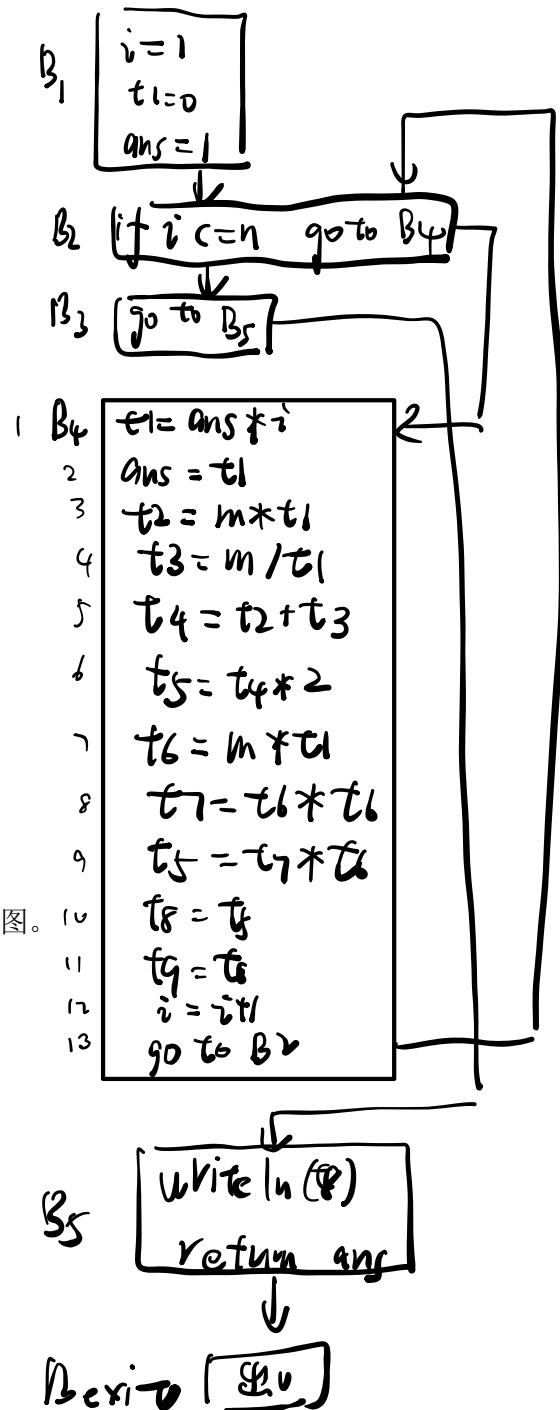 B1
i=1
t1=0
ans=1
B2 if i<=n go to B4
B3 go to B5
1 B4 t1=ans*i
2 ans=t1
3 t2=m*t1
4 t3=m/t1
5 t4=t2+t3
6 t5=t4*2
7 t6=m*t1
8 t7=t6*t6
9 t5=t7*t6
图。 10 t8=t5
11 t9=
12 i=i+1
13 go to B2
B5
writeln(t8)
return ans
Bexit 出口